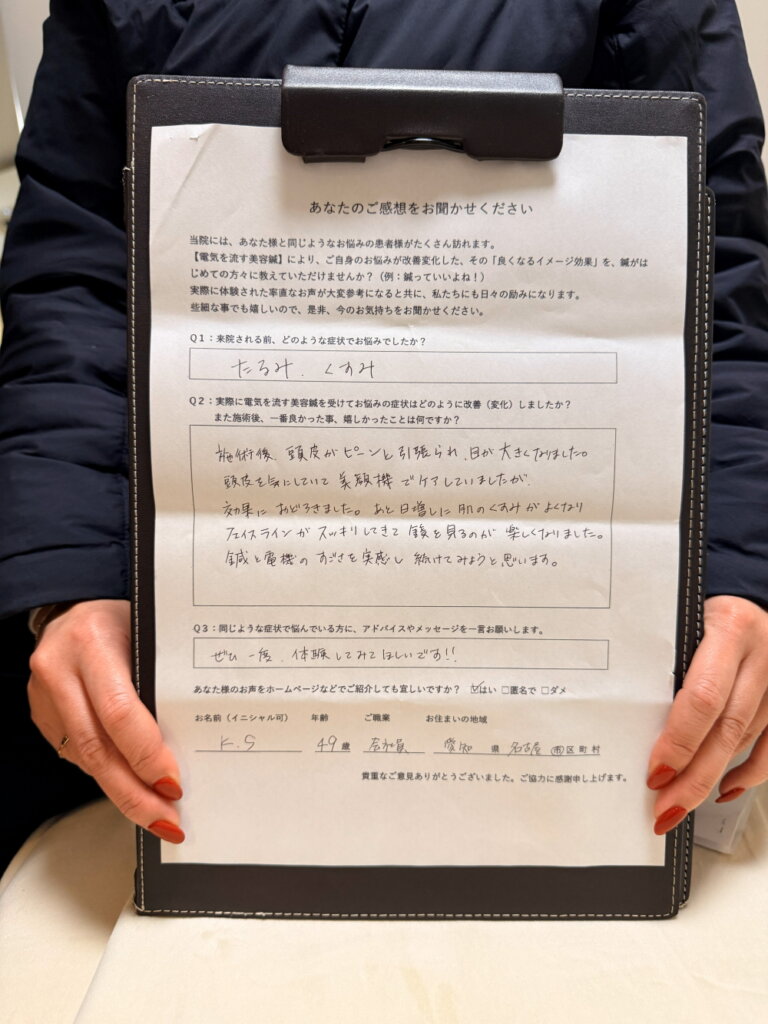 あなたのご感想をお聞かせください
当院には、あなた様と同じようなお悩みの患者様がたくさん訪れます。
【電気を流す美容鍼】により、ご自身のお悩みが改善変化した、その「良くなるイメージ効果」を、鍼がは
じめての方々に教えていただけませんか？（例：鍼っていいよね！）
実際に体験された率直なお声が大変参考になると共に、私たちにも日々の励みになります。
些細な事でも嬉しいので、是非、今のお気持ちをお聞かせください。
Q1：来院される前、どのような症状でお悩みでしたか？
たるみ、くすみ
Q2：実際に電気を流す美容鍼を受けてお悩みの症状はどのように改善（変化）しましたか？
また施術後、一番良かった事、嬉しかったことは何ですか？
施術後、頭皮がピーンと引張られ、目が大きくなりました。
頭皮を気にしていて美顔機でケアしていましたが、
効果におどろきました。あと日増しに肌のくすみがよくなり
フェイスラインがスッキリしてきて鏡を見るのが楽しくなりました。
鍼と電機のすごさを実感し続けてみようと思います。
Q3：同じような症状で悩んでいる方に、アドバイスやメッセージを一言お願いします。
ぜひ一度、体験してみてほしいです!!
あなた様のお声をホームページなどでご紹介しても宜しいですか？ ☑はい □匿名で □ダメ
お名前（イニシャル可） 年齢 ご職業 お住まいの地域
K.S 49歳 会社員 愛知 県 名古屋 市区町村
貴重なご意見ありがとうございました。ご協力に感謝申し上げます。